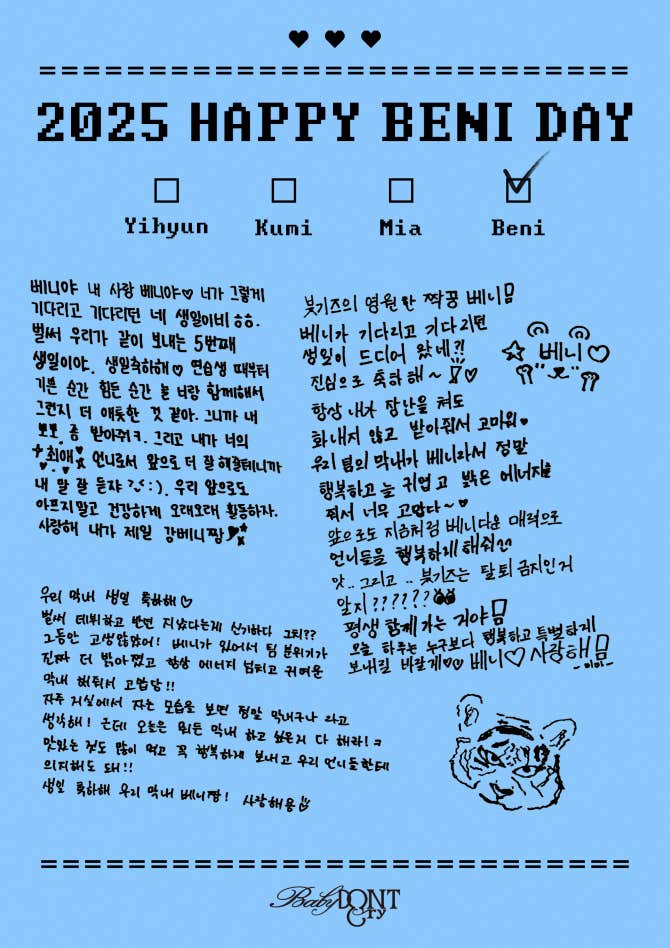 2025 HAPPY BENI DAY
Yihyun Kumi Mia Beni
베니야 내 사랑 베니야♡ 너가 그렇게
기다리고 기다리던 네 생일이비ㅎㅎ.
벌써 우리가 같이 보내는 5번째
생일이야. 생일축하해♡ 연습생 때부터
기쁜 순간 힘든 순간 늘 너랑 함께해서
그런지 더 애틋한 것 같아. 그니까 내
뽀뽀 좀 받아줘ㅋ. 그리고 내가 너의
최애 언니로서 앞으로 더 잘해줄테니까
내 말 잘 듣쟈 :). 우리 앞으로도
아프지말고 건강하게 오래오래 활동하자.
사랑해 내가 제일 강베니짱
붗키즈의 영원한 짝꿍 베니!
베니가 기다리고 기다리던
생일이 드디어 왔네?!
진심으로 축하해~ ♡
☆ 베니♡
항상 내가 장난을 쳐도
화내지 않고 받아줘서 고마워♥
우리 팀의 막내가 베니라서 정말
행복하고 늘 귀엽고 밝은 에너지를
줘서 너무 고맙다~♥
앞으로도 지금처럼 베니다운 매력으로
언니들을 행복하게 해줘
앗.. 그리고 .. 붗키즈는 탈퇴 금지인거
알지??????
평생 함께 가는 거야!
오늘 하루는 누구보다 행복하고 특별하게
보내길 바랄게♡♡ 베니♡ 사랑해!
-미아-
우리 막내 생일 축하해♡
벌써 데뷔하고 반년 지났다는게 신기하다 그치??
그동안 고생많았어! 베니가 있어서 팀 분위기가
진짜 더 밝아졌고 항상 에너지 넘치고 귀여운
막내 해줘서 고맙당!!
자주 거실에서 자는 모습을 보면 정말 막내구나 라고
생각해! 근데 오늘은 뭐든 막내 하고 싶은거 다 해라!ㅋ
맛있는 것도 많이 먹고 꼭 행복하게 보내고 우리 언니들한테
의지해도 돼!!
생일 축하해 우리 막내 베니짱! 사랑해용
Baby DONT Cry